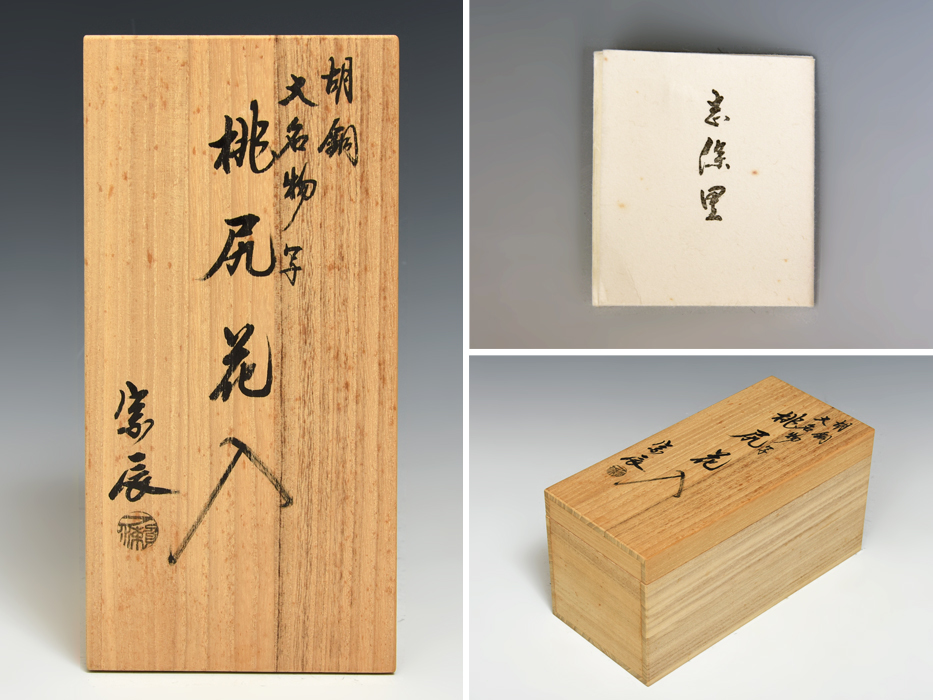 胡銅
大名物写
桃尻花入
宗辰
志條里
胡銅
大名物写
桃尻花入
宗辰